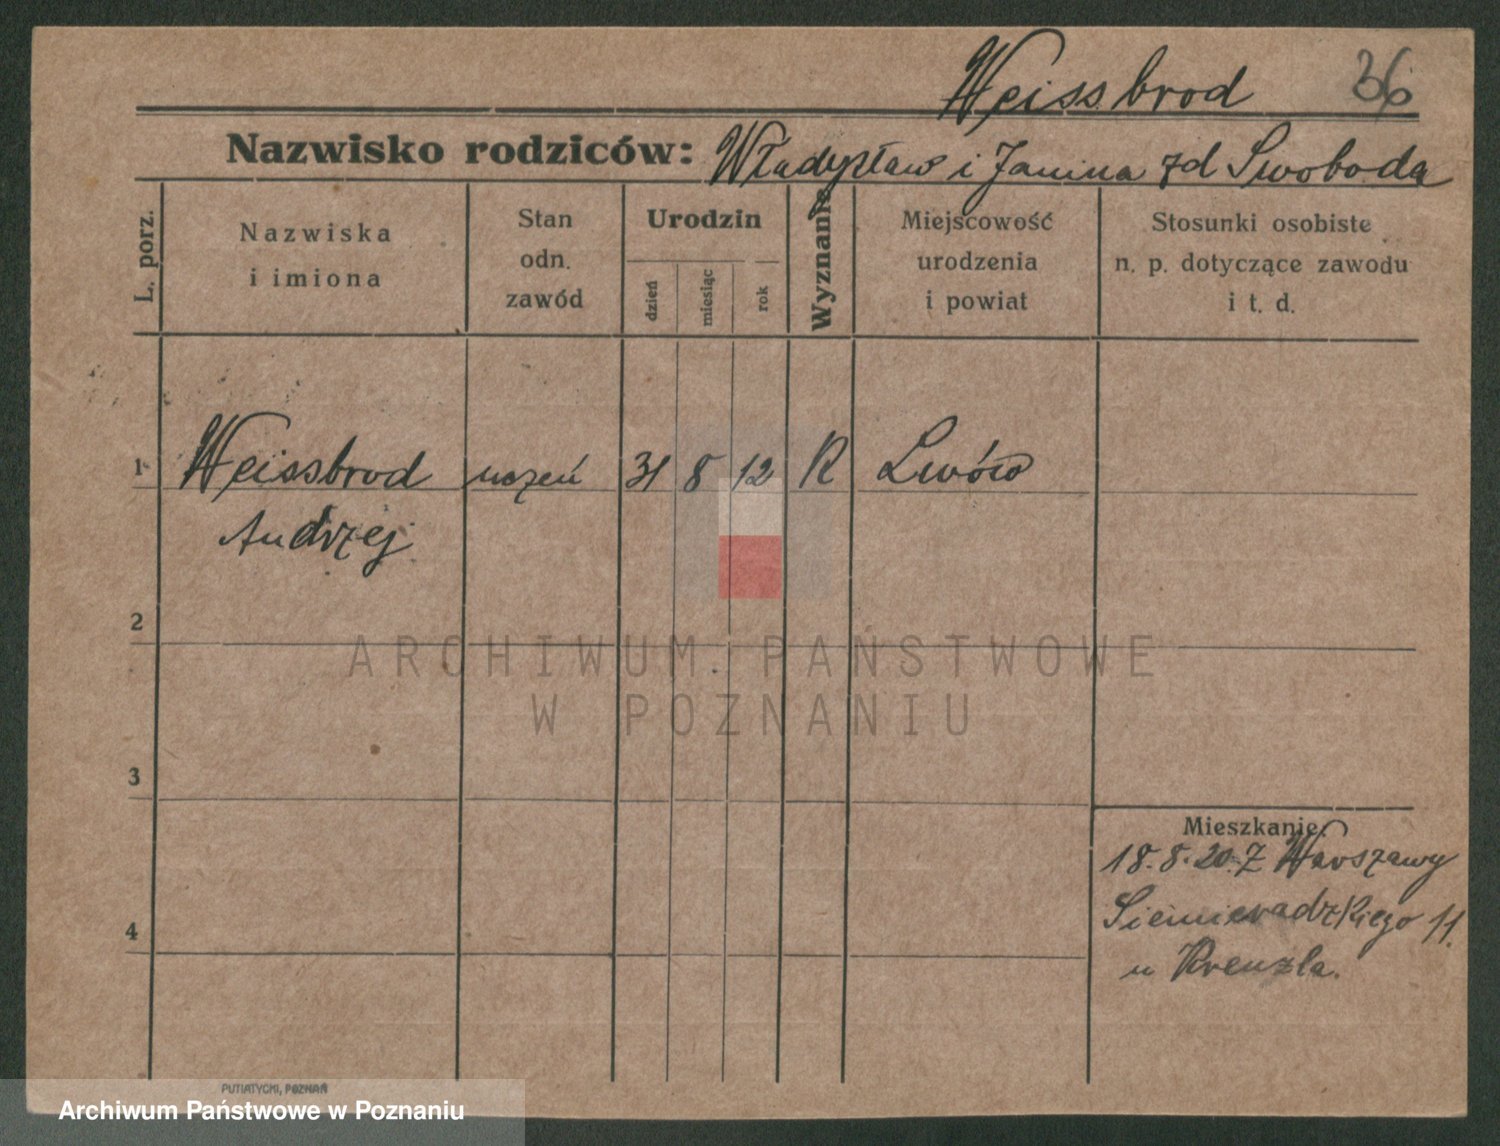 Weissbrod 36
Nazwisko rodziców: Władysław i Janina zd Swoboda
L. porz.
Nazwiska
i imiona
Stan
odn.
zawód
Urodzin
dzień
miesiąc
rok
Wyznanie
Miejscowość
urodzenia
i powiat
Stosunki osobiste
n. p. dotyczące zawodu
i t. d.
1 Weissbrod uczeń 31 8 12 R Lwów
Andrzej
2
ARCHIWUM PAŃSTWOWE
W POZNANIU
3
Mieszkanie:
18.8.20. Z Warszawy
Siemieradzkiego 11.
4
u Krenzla.
PUTIATYCKI, POZNAŃ
Archiwum Państwowe w Poznaniu